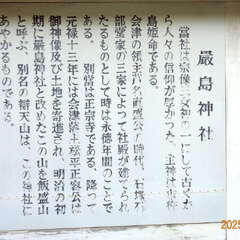 厳島神社
当社は宗像三女神の一にして古くか
ら人々の信仰が厚かった。主神は市杵
島姫命である。
会津の領主
部堂家の三家によって社殿が建てられ
たるものとして時は永徳年間のことで
ある。別当は正宗寺である。降って
元禄十三年には会津藩主松平正容公は
御神像及び土地を寄進され、明治の初
期に厳島神社と改めたこの山を飯盛山
と呼ぶ、別名の辯天山は、この神社に
あやかるものである。
2025